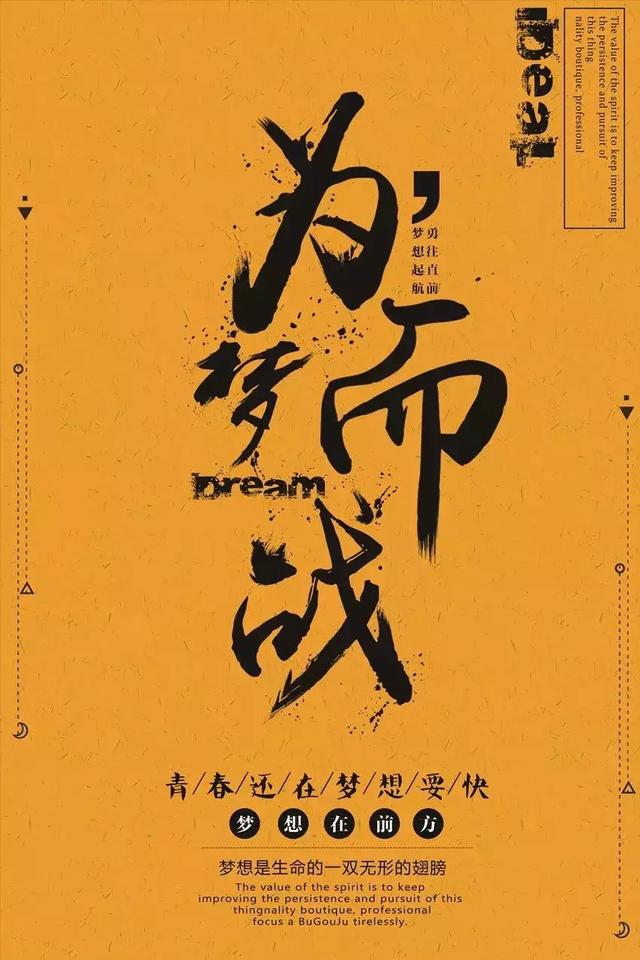 IDeaL
The value of the spirit is to keep improving
the persistence and pursuit of
this thing
nality boutique, professional
为
梦
而
战
,
勇往直前
梦想起航
Dream
青/春/还/在/梦/想/要/快
梦想在前方
梦想是生命的一双无形的翅膀
The value of the spirit is to keep
improving the persistence and pursuit of this
thingnality boutique, professional
focus a BuGouJu tirelessly.